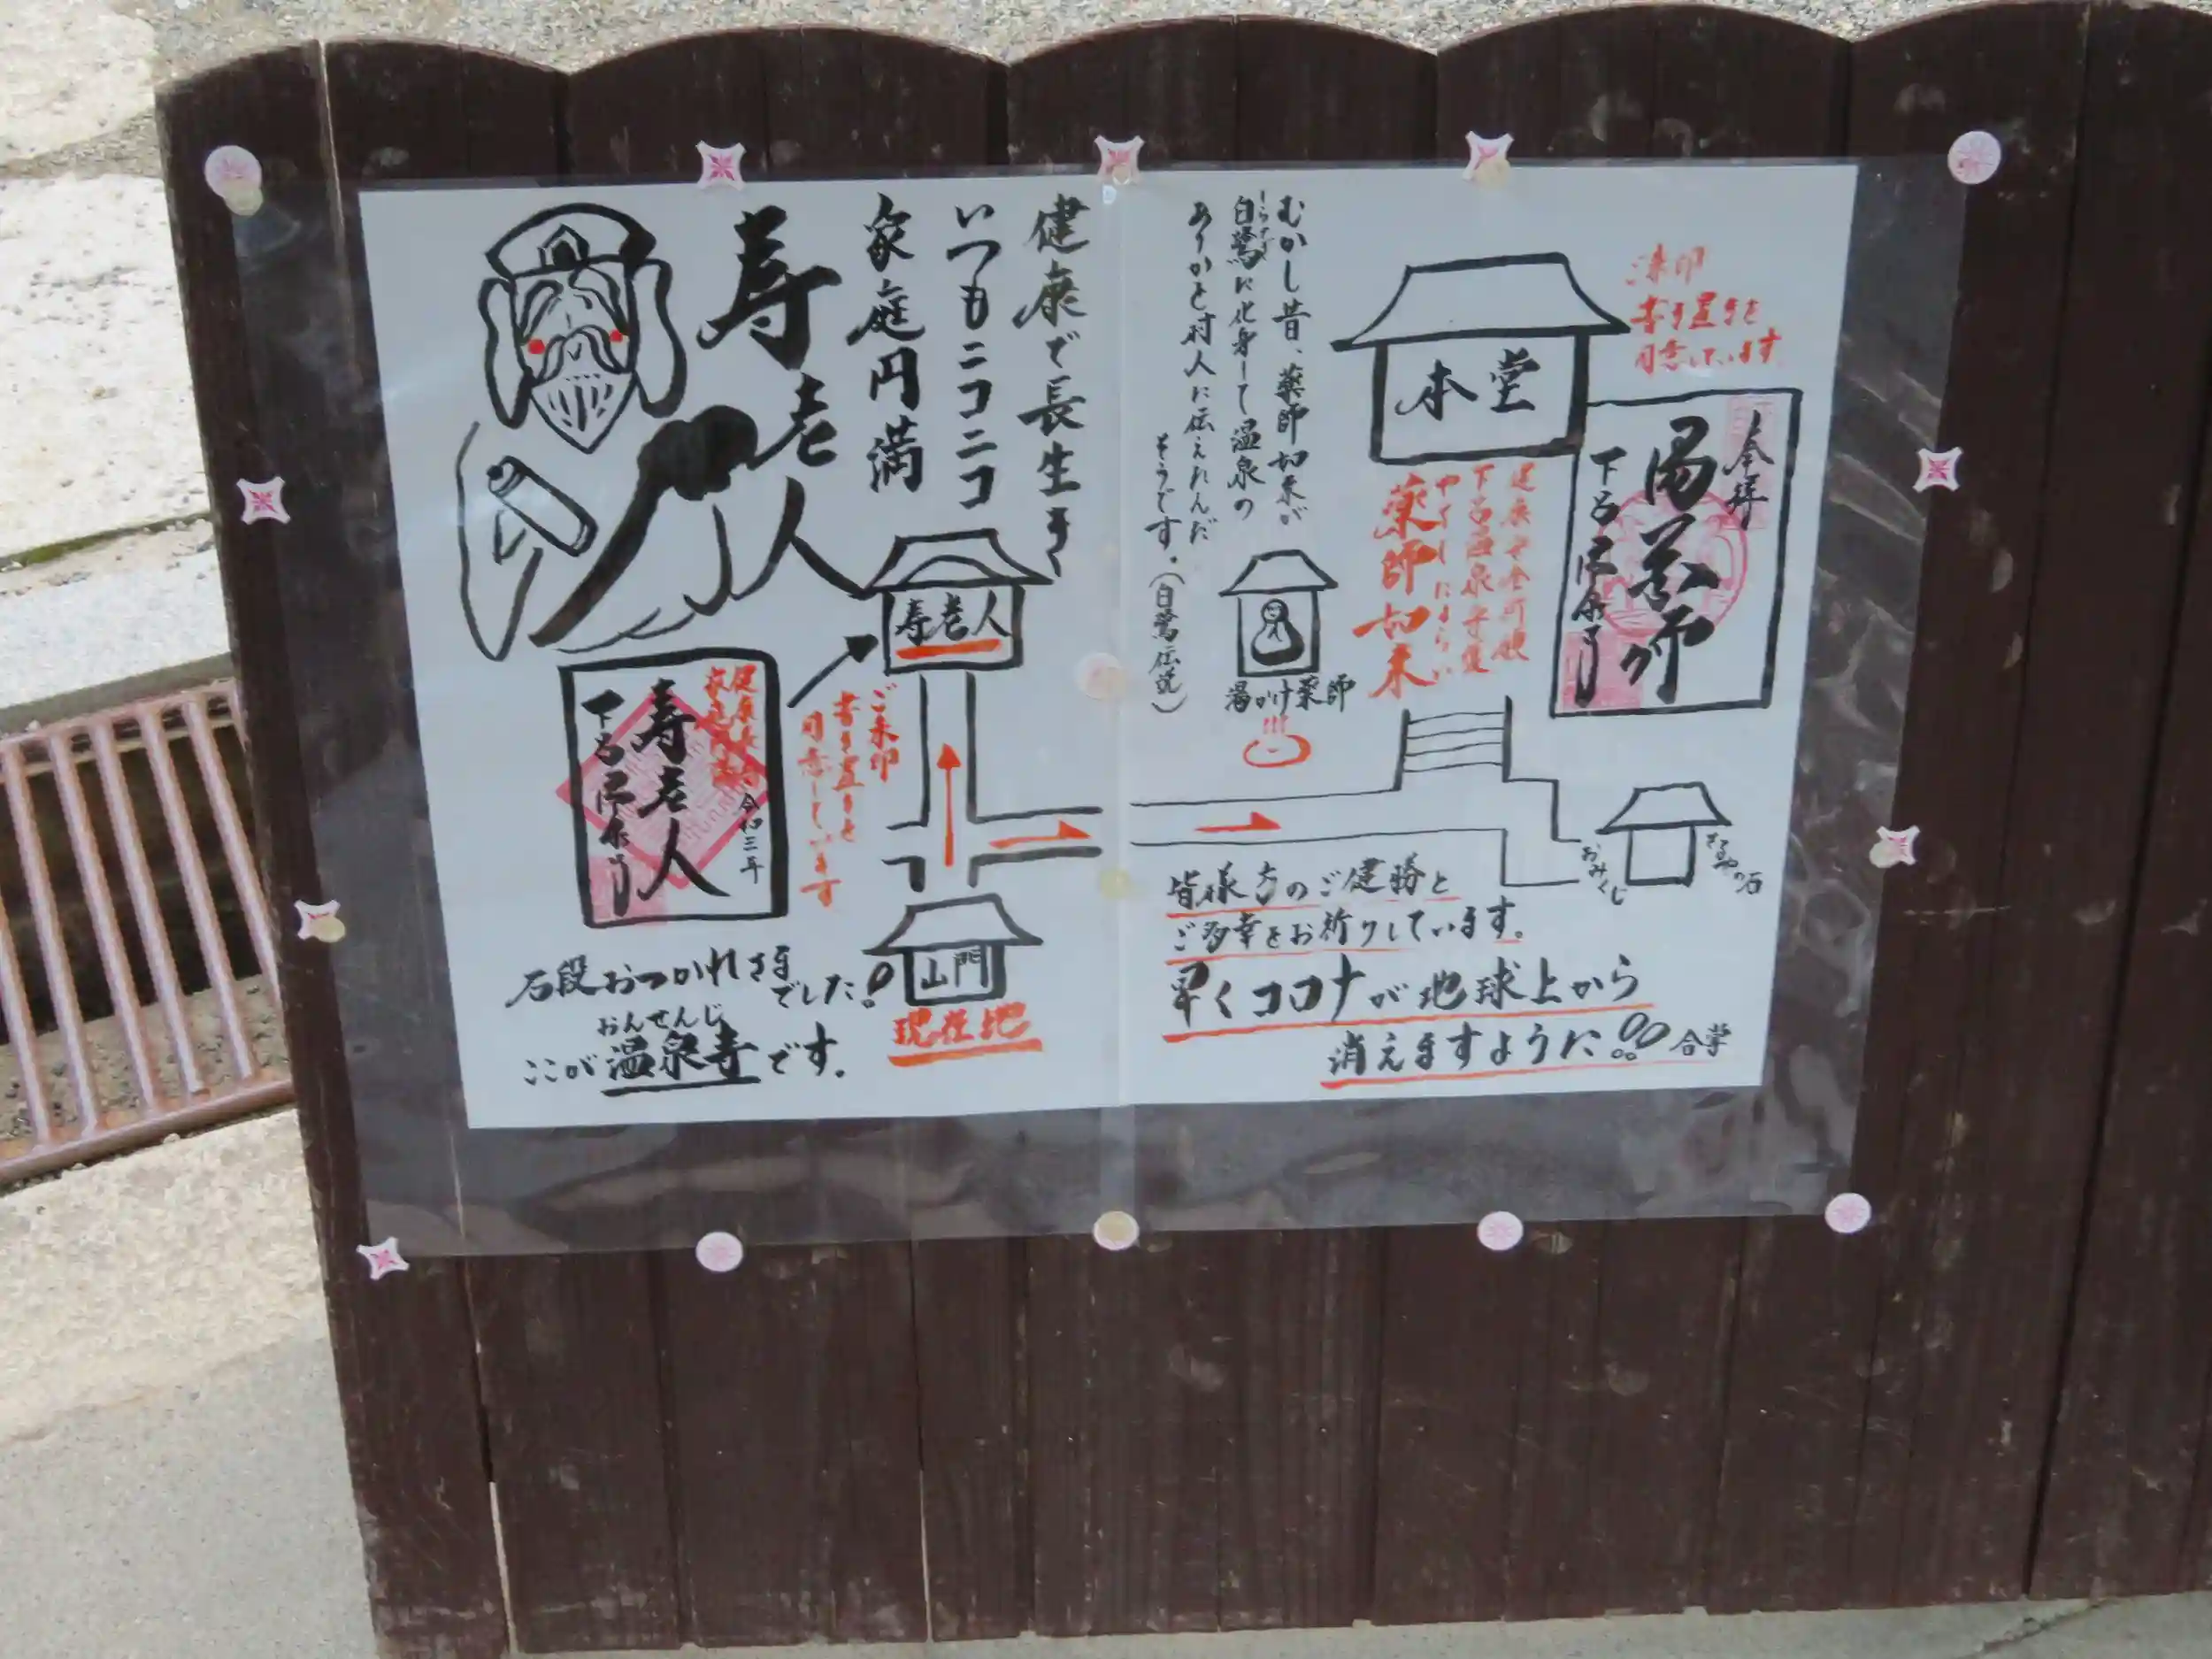 健康で長生き
いつもニコニコ
家庭円満
寿老人
寿老人
ご朱印
書き置きを
用意しています
令和三年
寿老人
下呂温泉寺
山門
現在地
石段おつかれさま
でした!
おんせんじ
ここが温泉寺です。
朱印
書き置きを
用意しています
奉拝
湯薬師
下呂温泉寺
本堂
下呂温泉守護
やくしにょらい
薬師如来
むかし昔、薬師如来が
しらさぎ
白鷺に化身して温泉の
ありかを村人に伝えれんだ
そうです。(白鷺伝説)
湯かけ薬師
おみくじ
さるやの石
皆様方のご健勝と
ご多幸をお祈りしています。
早くコロナが地球上から
消えますように!! 合掌